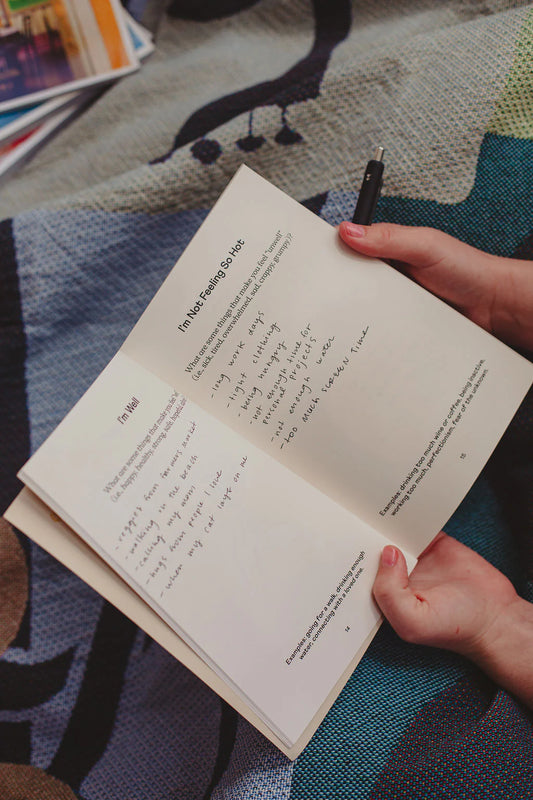 I'm Well
What are some things that make you feel
(i.e., happy, healthy, strong, safe, hopeful,
- veggies from farmers market
- walking on the beach
- calling my mom
- hugs from people I love
- when my cat lays on me
Examples: going for a walk, drinking enough
water, connecting with a loved one.
14
I'm Not Feeling So Hot
What are some things that make you feel "unwell"
(i.e., sick, tired, overwhelmed, sad, crappy, grumpy)?
- long work days
- tight clothing
- being hungry
- not enough time for
personal projects
- not enough water
- too much SCREEN TIME
Examples: drinking too much wine or coffee, being inactive,
working too much, perfectionism, fear of the unknown.
15